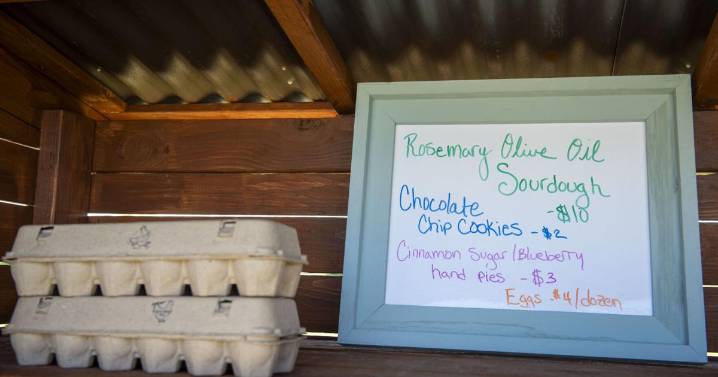 Rosemary Olive Oil
Sourdough
- $10
Chocolate
Chip Cookies - $2
Cinnamon Sugar/Blueberry
hand pies - $3
Eggs $4/dozen